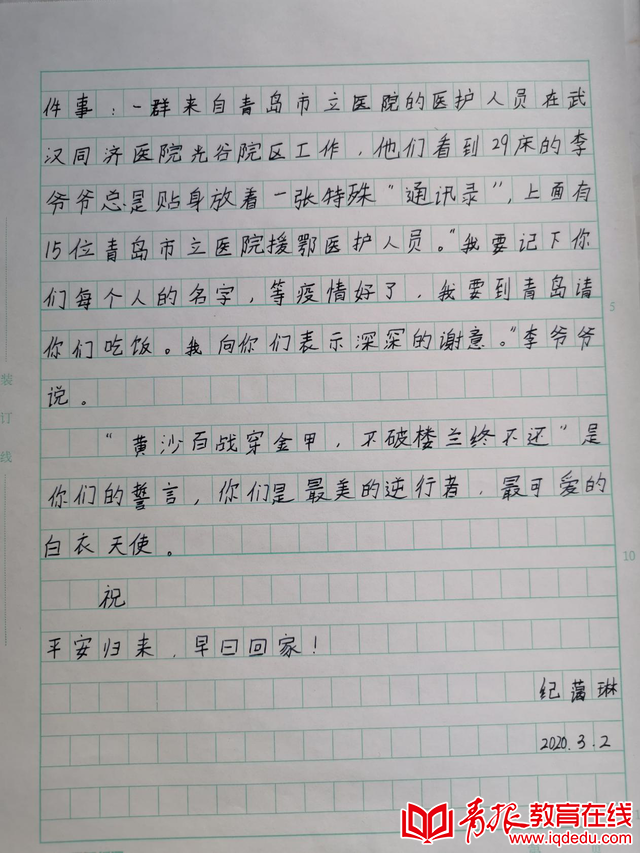 件事：一群来自青岛市立医院的医护人员在武
汉同济医院光谷院区工作，他们看到29床的李
爷爷总是贴身放着一张特殊“通讯录”，上面有
15位青岛市立医院援鄂医护人员。“我要记下你
们每个人的名字，等疫情好了，我要到青岛请
你们吃饭。我向你们表示深深的谢意。”李爷爷
说。
“黄沙百战穿金甲，不破楼兰终不还”是
5
你们的誓言，你们是最美的逆行者，最可爱的
白衣天使。
10
祝
平安归来，早日回家！
纪蔼琳
2020.3.2
装
订
线
青报教育在线
www.iqdedu.com